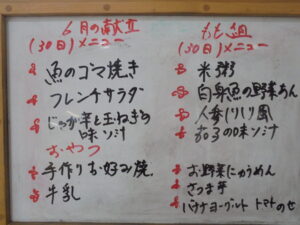 6月の献立
(30日)メニュー
魚のゴマ焼き
フレンチサラダ
じゃが芋と玉ねぎの
味ソ汁
おやつ
手作りお好み焼
牛乳
もも組
(30日)メニュー
米粥
白身魚の野菜あん
人参しりしり風
茄子の味ソ汁
お野菜にゅうめん
さつま芋
バナナヨーグルト トマトのせ